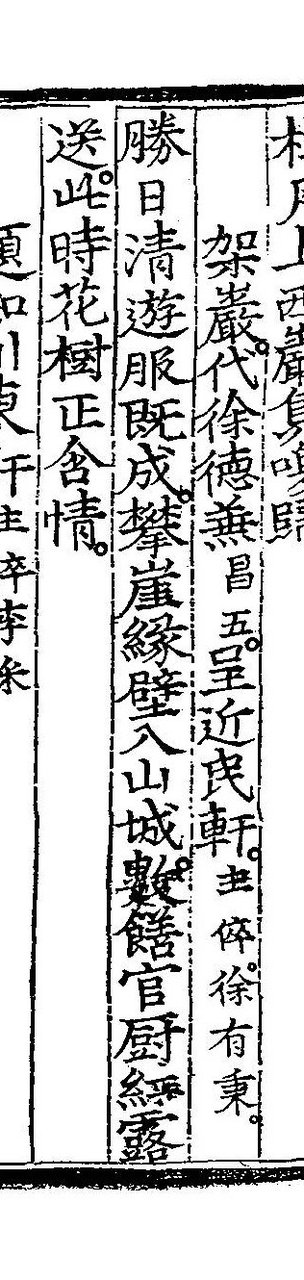 上西巖負
架巖代徐德無昌五呈近民軒主倅徐有秉
勝日清遊服既成攀崖緣壁入山城數饍官厨經露
送此時花樹正含情
主倅李采